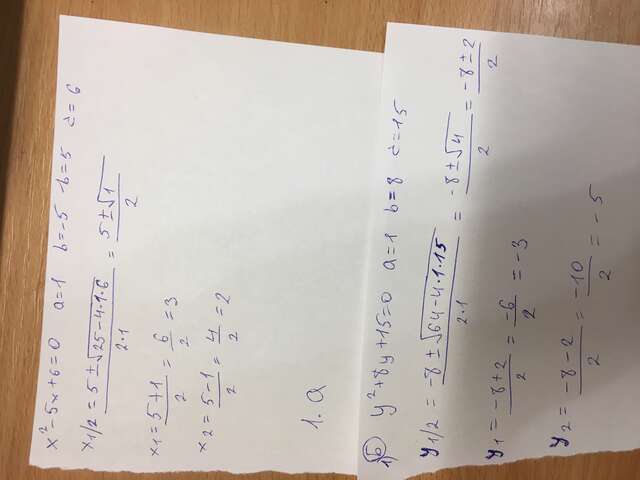 x²-5x+6=0 a=1 b=-5 -b=5 c=6
x1/2 = 5±√25-4·1·6 / 2·1 = 5±√1 / 2
x1 = 5+1 / 2 = 6 / 2 = 3
x2 = 5-1 / 2 = 4 / 2 = 2
1. a
1) б y²+8y+15=0 a=1 b=8 c=15
y1/2 = -8±√64-4·1·15 / 2·1 = -8±√4 / 2 = -8±2 / 2
y1 = -8+2 / 2 = -6 / 2 = -3
y2 = -8-2 / 2 = -10 / 2 = -5